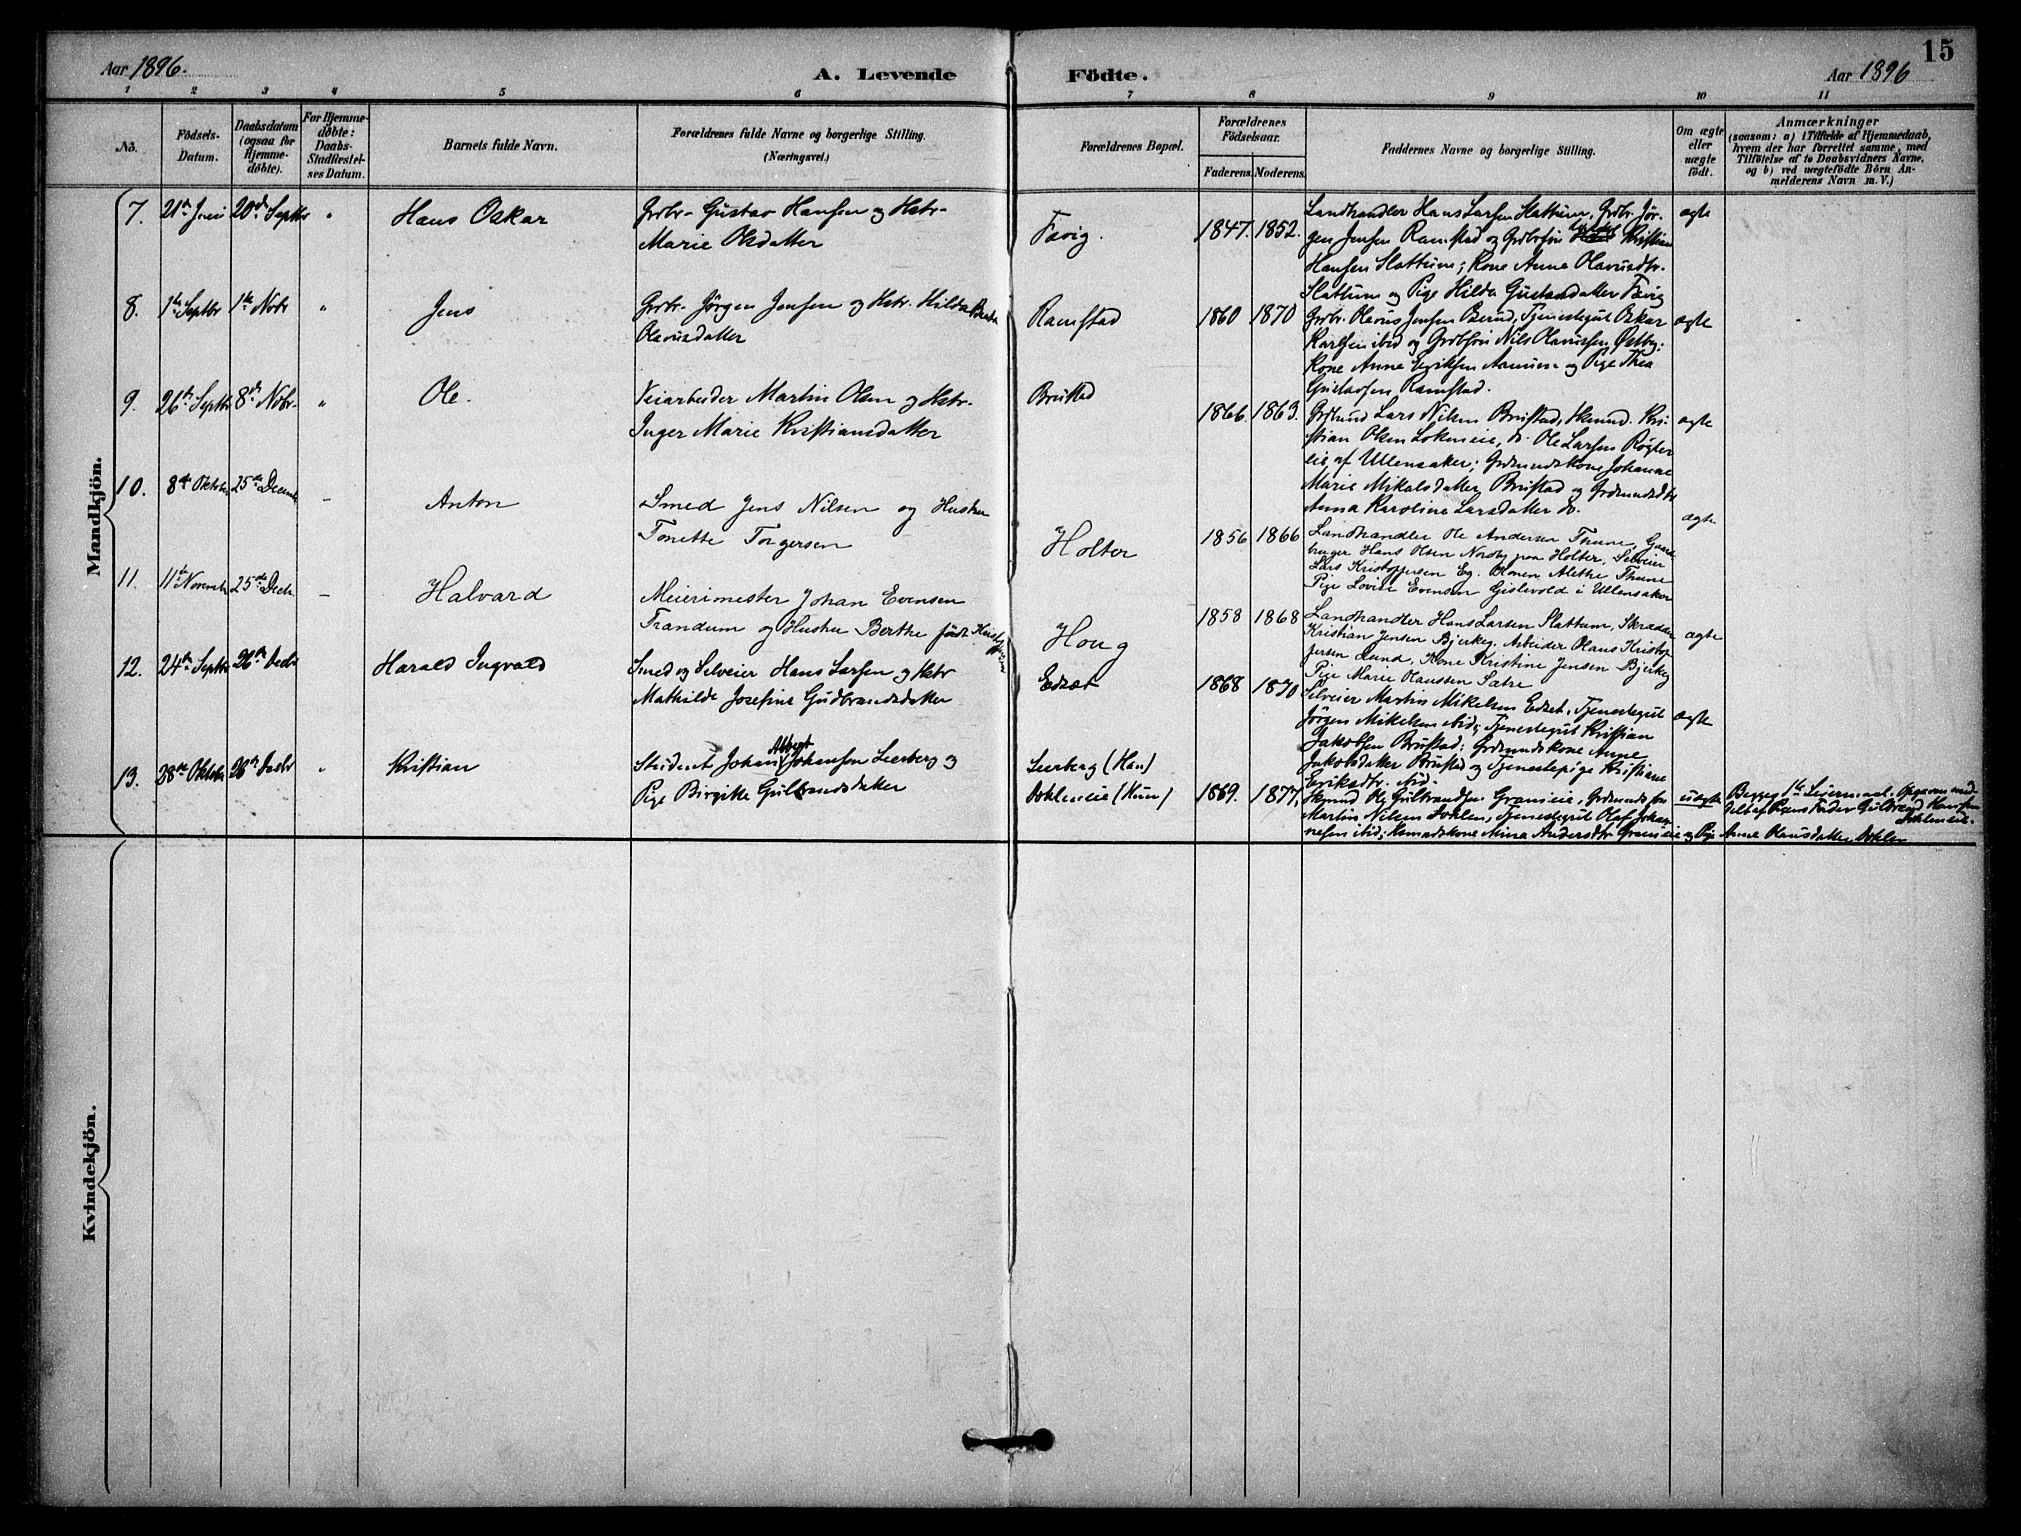 15
Aar 1896.
A. Levende Födte.
Aar 1896
1 2 3 4 5 6 7 8 9 10 11
Nö.
Födsels-Datum.
Daabsdatum (ogsaa for Hjemme-döbte).
For Hjemme-döbte: Daabs-Stadfæstel-ses Datum.
Barnets fulde Navn.
Forældrenes fulde Navne og borgerlige Stilling.
(Næringsvei.)
Forældrenes Bopæl.
Forældrenes Födselsaar.
Faderens. Moderens.
Faddernes Navne og borgerlige Stilling.
Om ægte eller uægte födt.
Anmærkninger
(saasom: a) i Tilfælde af Hjemmedaab, hvem der har forrettet samme, med Tilföielse af to Daabsvidners Navne, og b) ved uægtefödte Börn An-melderens Navn m. V.)
Mandkjön.
7. 21de Juni 20de Septbr " Hans Oskar
Grdbr. Gustav Hansen og Hstr.
Marie Olsdatter
Favig. 1847. 1852.
Landhandler Hans Larsen Slattum, Grdbr. Jör-
gen Jensen Ramstad og Grdbrsön Kristian
Hansen Slattum; Kone Anne Olavusdtr.
Slattum og Pige Hilda Gustavsdatter Favig
ægte
8. 1ste Septbr 1ste Novbr " Jens
Grdbr. Jörgen Jensen og Hstr. Hilda Berta
Olavusdatter
Ramstad 1860 1870
Grdbr. Olavus Jensen Berud, Tjenestegut Oskar
Karlsen ibid og Grdbrsön Nils Olavussen Østby;
Kone Anne Eriksen Aamien og Pige Thea
Gustavsen Ramstad.
ægte
9. 26de Septbr 8de Novbr. " Ole.
Veiarbeider Martin Olsen og Hstr.
Inger Marie Kristiansdatter
Brustad 1866. 1863.
Grdmd Lars Nilsen Brustad, Hsmnd. Kri-
stian Olsen Lokeneie, do. Ole Larsen Rögler
eie af Ullensaker; Grdmndskone Johanne
Marie Mikalsdatter Brustad og Grdmndsdtr
Anna Karoline Larsdatter do.
ægte
10. 8de Oktober 25de Decembr - Anton
Smed Jens Nilsen og Hustru
Tonette Torgersen
Holter 1856 1866
Landhandler Ole Andersen Thune, Gaard
bruger Hans Olsen Nordby paa Holter, Selveier
Lars Kristoffersen Eg. Konen Alethe Thune
Pige Lovise Evensen Gislevold i Ullensaker
ægte
11. 11te Novembr 25de Decbr. - Halvard
Meierimester Johan Evensen
Trandum og Hustru Berthe födt Kristoffersen
Houg 1858 1868
Landhandler Hans Larsen Slattum, Skrædder
Kristian Jensen Bjerkeg, Arbeider Olaus Kristof
fersen Lund, Kone Kristine Jensen Bjerkeg
Pige Marie Claussen Sætre
ægte
12. 24de Septbr 26de Decbr Harald Ingvald
Smed og Selveier Hans Larsen og Hstr
Mathilde Josefine Gudbrandsdatter
Edset 1868 1870
Selveier Martin Mikelsen Edset, Tjenestegut
Jörgen Mikelsen ibid; Tjenestegut Kristian
Jakobsen Brustad; Grdmndskone Anne
Jakobsdatter Brustad og Tjenestepige Kristiane
Eriksdtr. ibid.
ægte
13. 28de Oktober 26de Decbr " Kristian
Student Johan Albert Johansen Leerberg og
Pige Birgitte Gulbrandsdatter
Leerberg (Han)
Dohleneie (Hun) 1869. 1877.
Hsmnd Ole Gulbrandsen Graneie, Grdmnds sön
Martin Nilsen Dohlen, Tjenestegut Olaf Johan
nesen ibid; Hsmndskone Mina Andersdtr Graneie og Pige Anne Olausdatter Dohlen
uægte
Begges 1ste Leiermaal. Opgaven med-
delt af Pigens Fader Gulbrand Hansen
Dohleneie.
Kvindekjön.